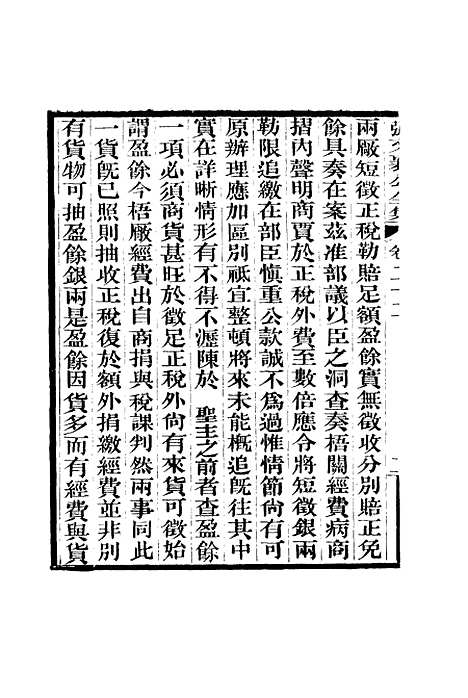 兩厰短徵正稅勒賠足額盈餘實無徵收分別賠正免
餘具奏在案茲准部議以臣之洞查奏梧關經費病商
摺內聲明商賈於正稅外費至數倍應令將短徵銀兩
勒限追繳在部臣慎重公款誠不爲過惟情節尙有可
原辦理應加區別祇宜整頓將來未能概追旣往其中
實在詳晰情形有不得不瀝陳於 聖主之前者查盈餘
一項必須商貨甚旺於徵足正稅外尙有來貨可徵始
謂盈餘今梧厰經費出自商捐與稅課判然兩事同此
一貨旣已照則抽收正稅復於額外捐繳經費並非別
有貨物可抽盈餘銀兩是盈餘因貨多而有經費與貨